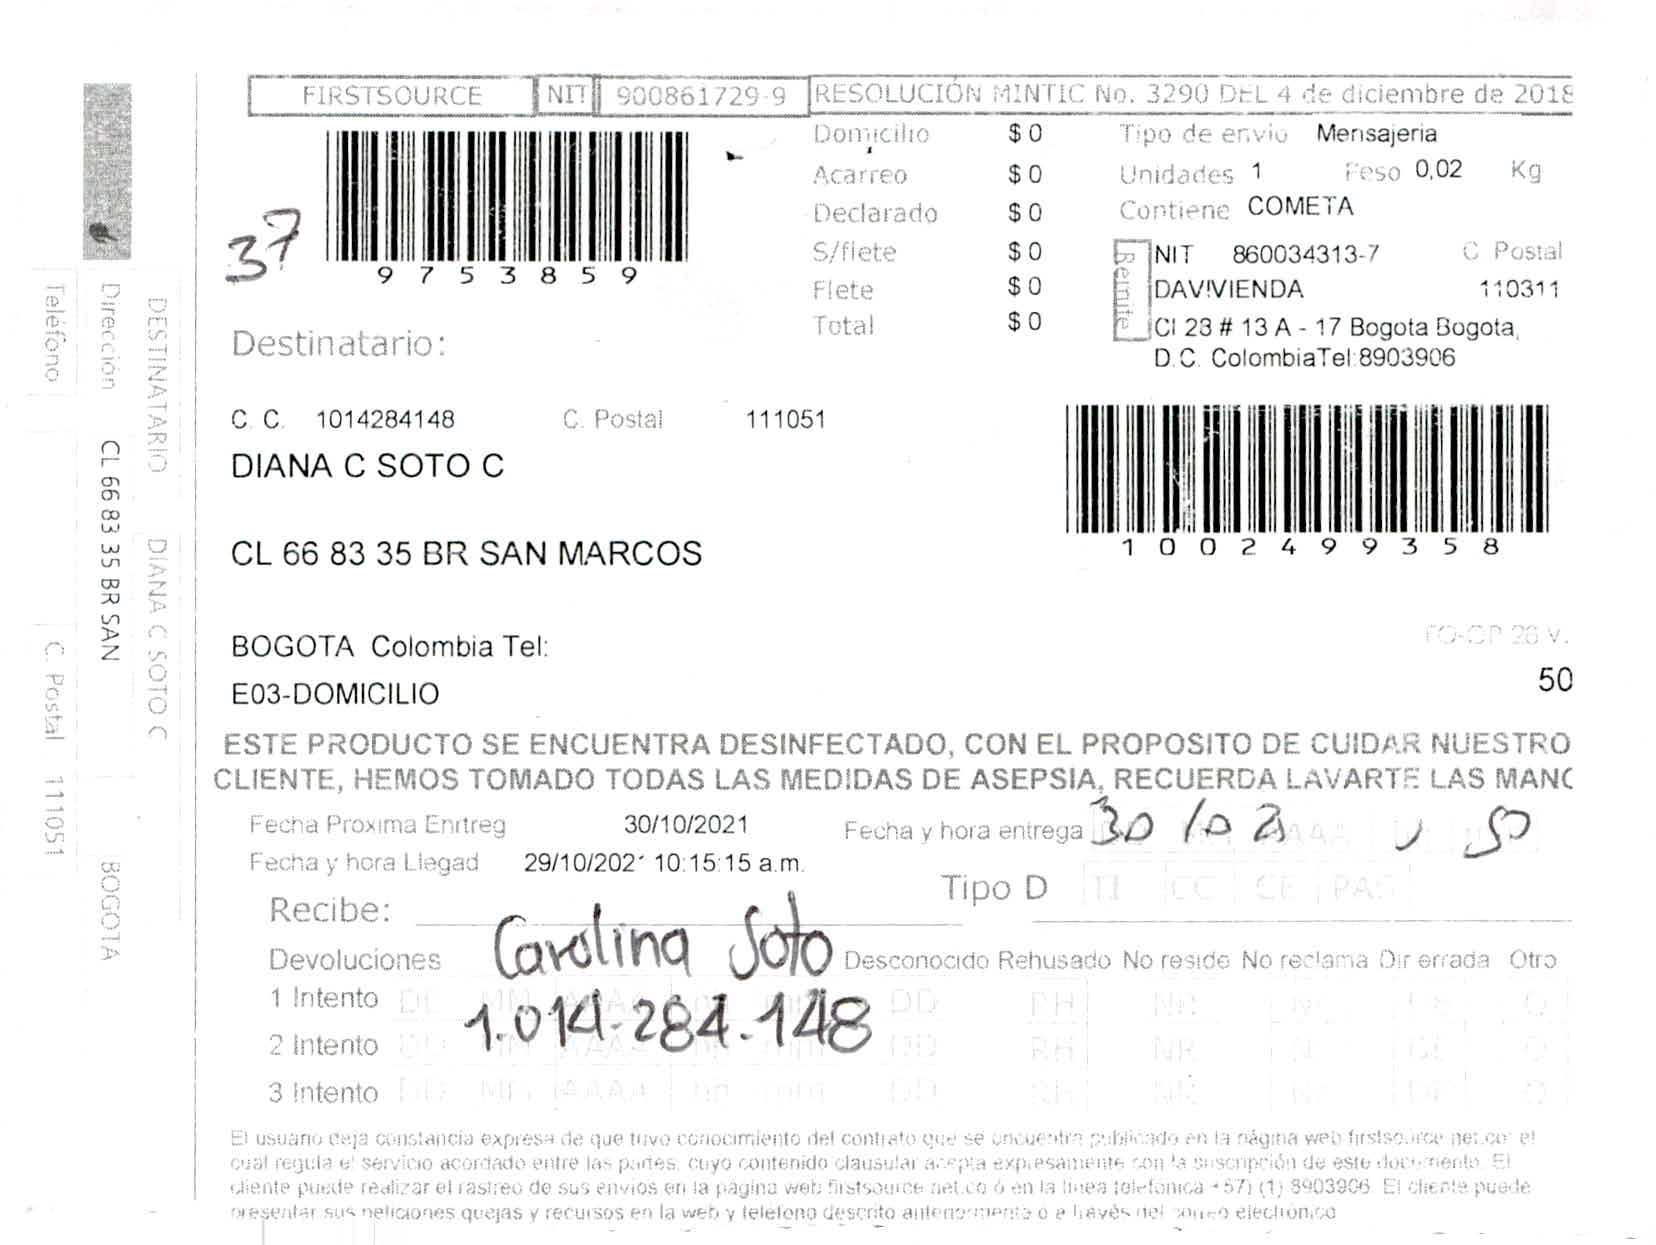 FIRSTSOURCE NIT 900861729-9 RESOLUCIÓN MINTIC No. 3290 DEL 4 de diciembre de 2018
37
9753859
Domicilio $ 0
Acarreo $ 0
Declarado $ 0
S/flete $ 0
Flete $ 0
Total $ 0
Tipo de envio Mensajeria
Unidades 1 Peso 0,02 Kg
Contiene COMETA
Remite
NIT 860034313-7 C Postal
DAVIVIENDA 110311
Cl 28 # 13 A - 17 Bogota Bogota,
D.C. ColombiaTel:8903906
Destinatario:
C. C. 1014284148 C. Postal 111051
DIANA C SOTO C
CL 66 83 35 BR SAN MARCOS
1002499358
BOGOTA Colombia Tel:
E03-DOMICILIO
FO-OP 26 V.
50
ESTE PRODUCTO SE ENCUENTRA DESINFECTADO, CON EL PROPOSITO DE CUIDAR NUESTRO
CLIENTE, HEMOS TOMADO TODAS LAS MEDIDAS DE ASEPSIA, RECUERDA LAVARTE LAS MANO
Fecha Proxima Enrtreg 30/10/2021 Fecha y hora entrega 30 10 21 50
Fecha y hora Llegad 29/10/2021 10:15:15 a.m.
Tipo D TI CC CE PAS
Recibe: Carolina Soto
1.014.284.148
Devoluciones Desconocido Rehusado No reside No reclama Dir errada Otro
1 Intento DD MM AAAA hh mm DD RH NR O
2 Intento DD MM AAAA hh mm DD RH NR O
3 Intento DD MM AAAA hh mm DD RH NR O
El usuario deja constancia expresa de que tuvo conocimiento del contrato que se encuentra publicado en la página web firstsource.net.co, el
cual regula el servicio acordado entre las partes, cuyo contenido clausular acepta expresamente con la suscripción de este documento. El
cliente puede realizar el rastreo de sus envios en la pagina web firstsource.net.co ó en la linea telefonica +57) (1) 8903906. El cliente puede
presentar sus peticiones quejas y recursos en la web y telefono descrito anteriormente o a través del correo electrónico
DESTINATARIO DIANA C SOTO C
Dirección CL 66 83 35 BR SAN BOGOTA
Teléfono C. Postal 111051